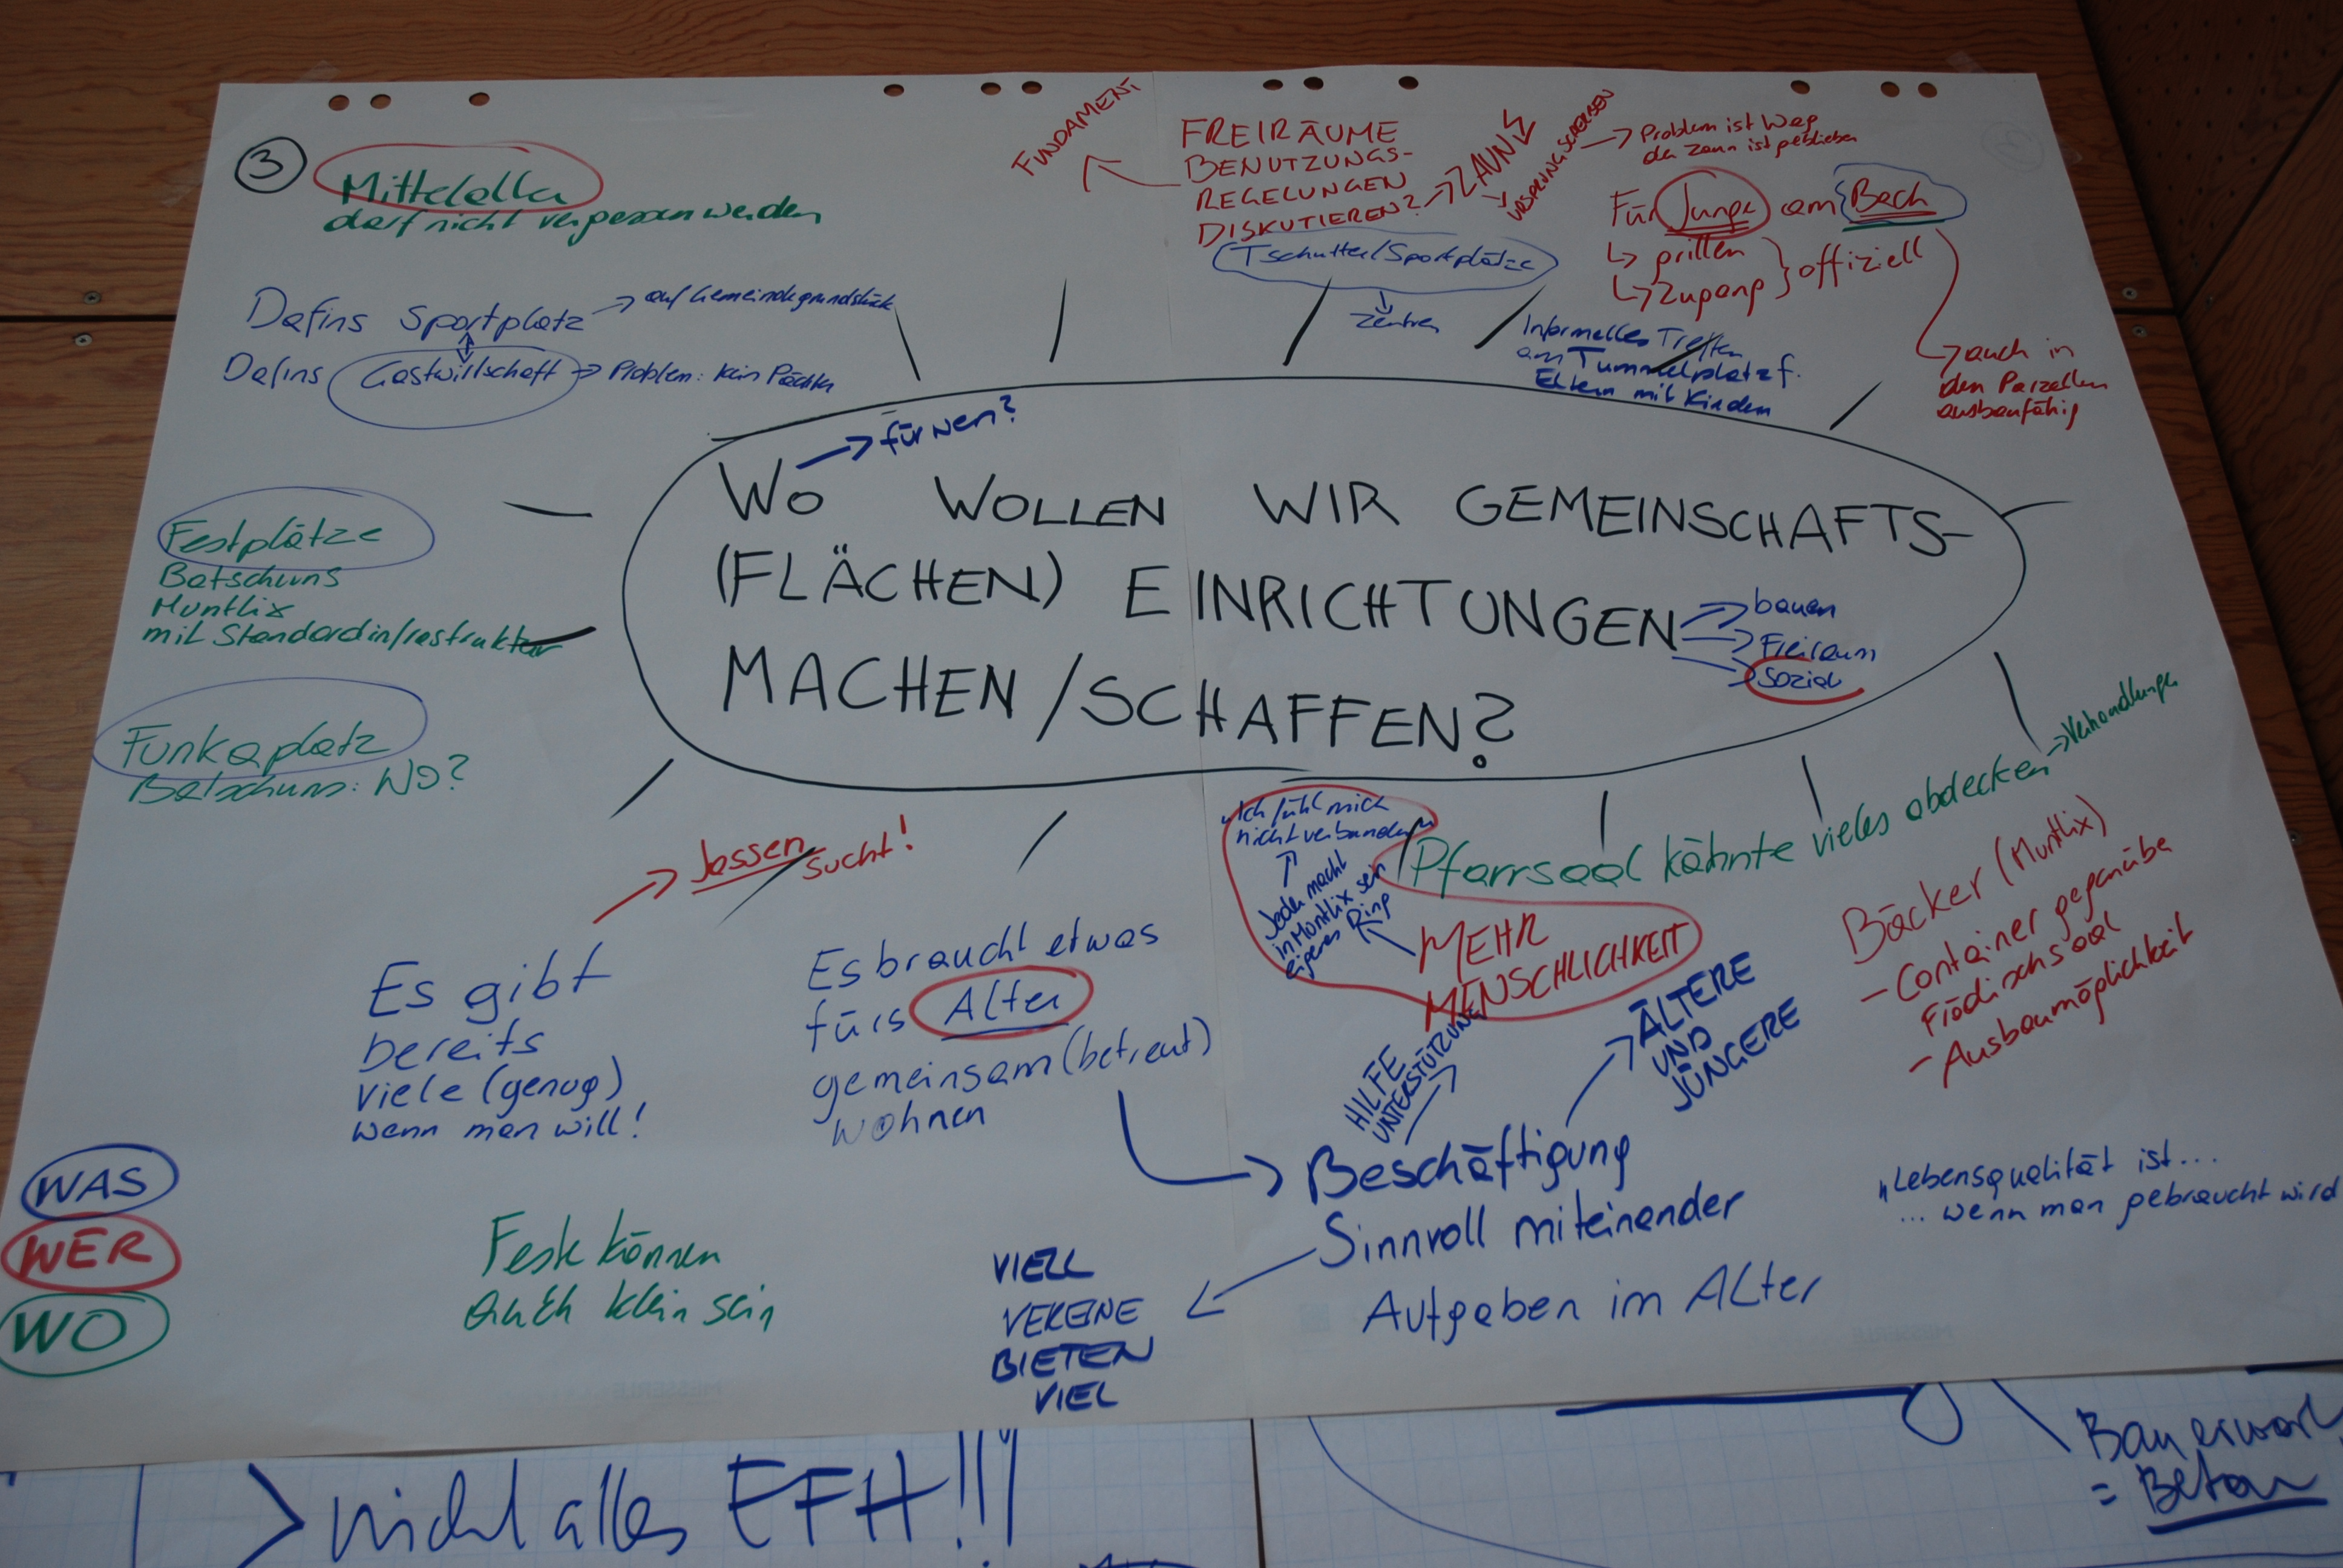 3
Mittelalter
darf nicht vergessen werden
FUNDAMENT
FREIRÄUME
BENUTZUNGS-
REGELUNGEN
DISKUTIEREN?
ZAUN
Problem ist Weg
der Zaun ist geblieben
Für Junge am Bach
grillen
Zugang
offiziell
auch in
den Parzellen
ausbaufähig
Tschutter/Sportplätze
Zentren
Informelles Treffen
am Tummelplatz f.
Eltern mit Kindern
Dafins Sportplatz
auf Gemeindegrundstück
Dafins Gastwirtschaft
Problem: kein Pächter
Festplätze
Batschuns
Muntlix
mit Standardinfrastruktur
Funkaplatz
Batschuns: WO?
für wen?
WO WOLLEN WIR GEMEINSCHAFTS-
(FLÄCHEN) EINRICHTUNGEN
MACHEN/SCHAFFEN?
bauen
Freiraum
Sozial
Jassen
sucht!
Es gibt
bereits
viele (genug)
wenn man will!
Es braucht etwas
fürs Alter
gemeinsam (betreut)
wohnen
Ich fühl mich
nicht verbunden
Jeder macht
in Muntlix sein
eigenes Ding
Pfarrsaal könnte vieles abdecken
Verhandlungen
MEHR
MENSCHLICHKEIT
Bäcker (Muntlix)
- Container gegenüber
Frödischsaal
- Ausbaumöglichkeit
HILFE
UNTERSTÜTZUNG
ÄLTERE
UND
JÜNGERE
Beschäftigung
Sinnvoll miteinander
Aufgaben im Alter
„Lebensqualität ist...
... wenn man gebraucht wird
WAS
WER
WO
Feste können
auch klein sein
VIELE
VEREINE
BIETEN
VIEL
> nicht alles EFH!!!
= Beton